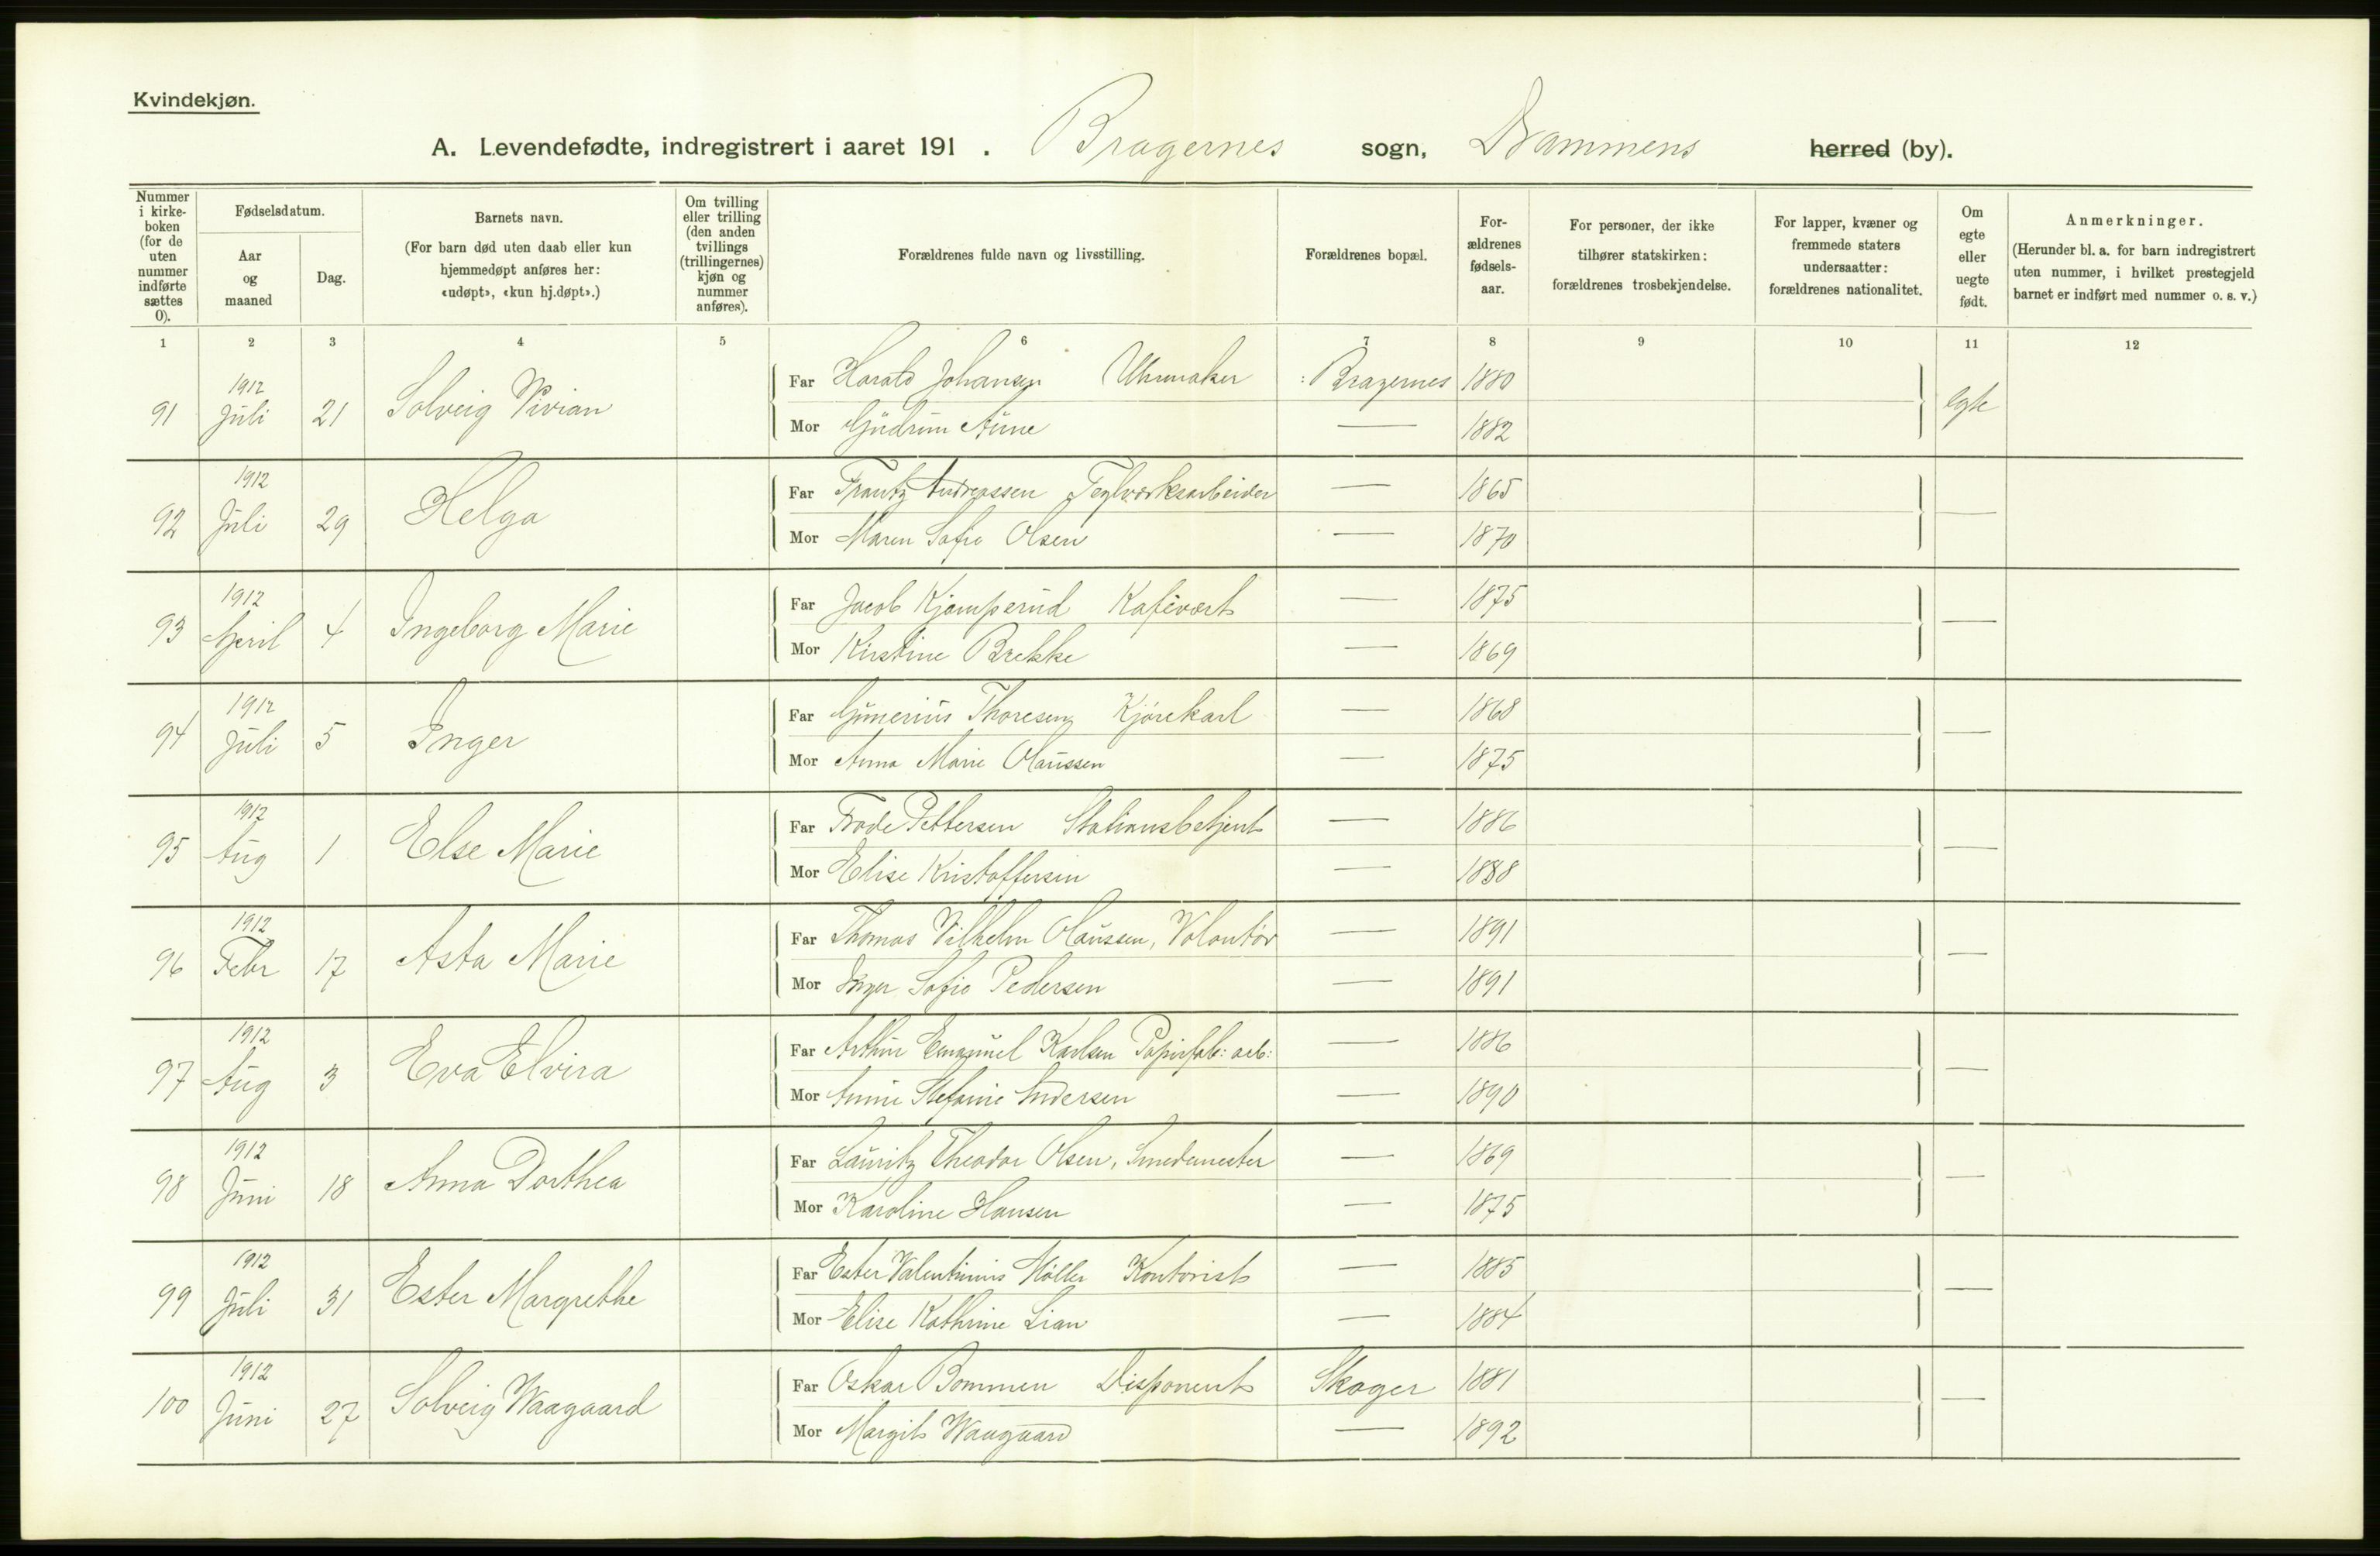 Kvindekjøn.
A. Levendefødte, indregistrert i aaret 191 . Bragernes sogn, Drammens herred (by).
Nummer i kirke-boken (for de uten nummer indførte sættes 0).
Fødselsdatum.
Aar og maaned
Dag.
Barnets navn.
(For barn død uten daab eller kun hjemmedøpt anføres her: «udøpt», «kun hj.døpt».)
Om tvilling eller trilling (den anden tvillings (trillingernes) kjøn og nummer anføres).
Forældrenes fulde navn og livsstilling.
Forældrenes bopæl.
For-ældrenes fødsels-aar.
For personer, der ikke tilhører statskirken: forældrenes trosbekjendelse.
For lapper, kvæner og fremmede staters undersaatter: forældrenes nationalitet.
Om egte eller uegte født.
Anmerkninger.
(Herunder bl. a. for barn indregistrert uten nummer, i hvilket prestegjeld barnet er indført med nummer o. s. v.)
1 2 3 4 5 6 7 8 9 10 11 12
91 1912 Juli 21 Solveig Vivian Far Harald Johansen Uhrmaker : Bragernes 1880 egte
Mor Gudrun Aune — 1882
92 1912 Juli 29 Helga Far Frantz Andreassen Teglverksarbeider — 1865 —
Mor Maren Sofie Olsen — 1870
93 1912 April 4 Ingeborg Marie Far Jacob Kjamperud Kafévert — 1875 —
Mor Kirstine Brekke — 1869
94 1912 Juli 5 Inger Far Gunerius Thoresen Kjørekarl — 1868 —
Mor Anna Marie Olaussen — 1875
95 1912 Aug 1 Else Marie Far Frode Pettersen Stationsbetjent — 1886 —
Mor Elise Kristoffersen — 1888
96 1912 Febr 17 Asta Marie Far Thomas Vilhelm Olaussen, Volontør — 1891 —
Mor Inger Sofie Pedersen — 1891
97 1912 Aug 3 Eva Elvira Far Arthur Emanuel Karlsen Papirfab: arb: — 1886 —
Mor Annie Stefanie Andersen — 1890
98 1912 Juni 18 Anna Dorthea Far Lauritz Theodor Olsen, Smedemester — 1869 —
Mor Karoline Hansen — 1875
99 1912 Juli 31 Ester Margrethe Far Ester Valentinius Møller Kontorist — 1885 —
Mor Elise Kathrine Lian — 1884
100 1912 Juni 27 Solveig Waagaard Far Oskar Bommen Disponent Skoger 1881 —
Mor Margit Waagaard — 1892